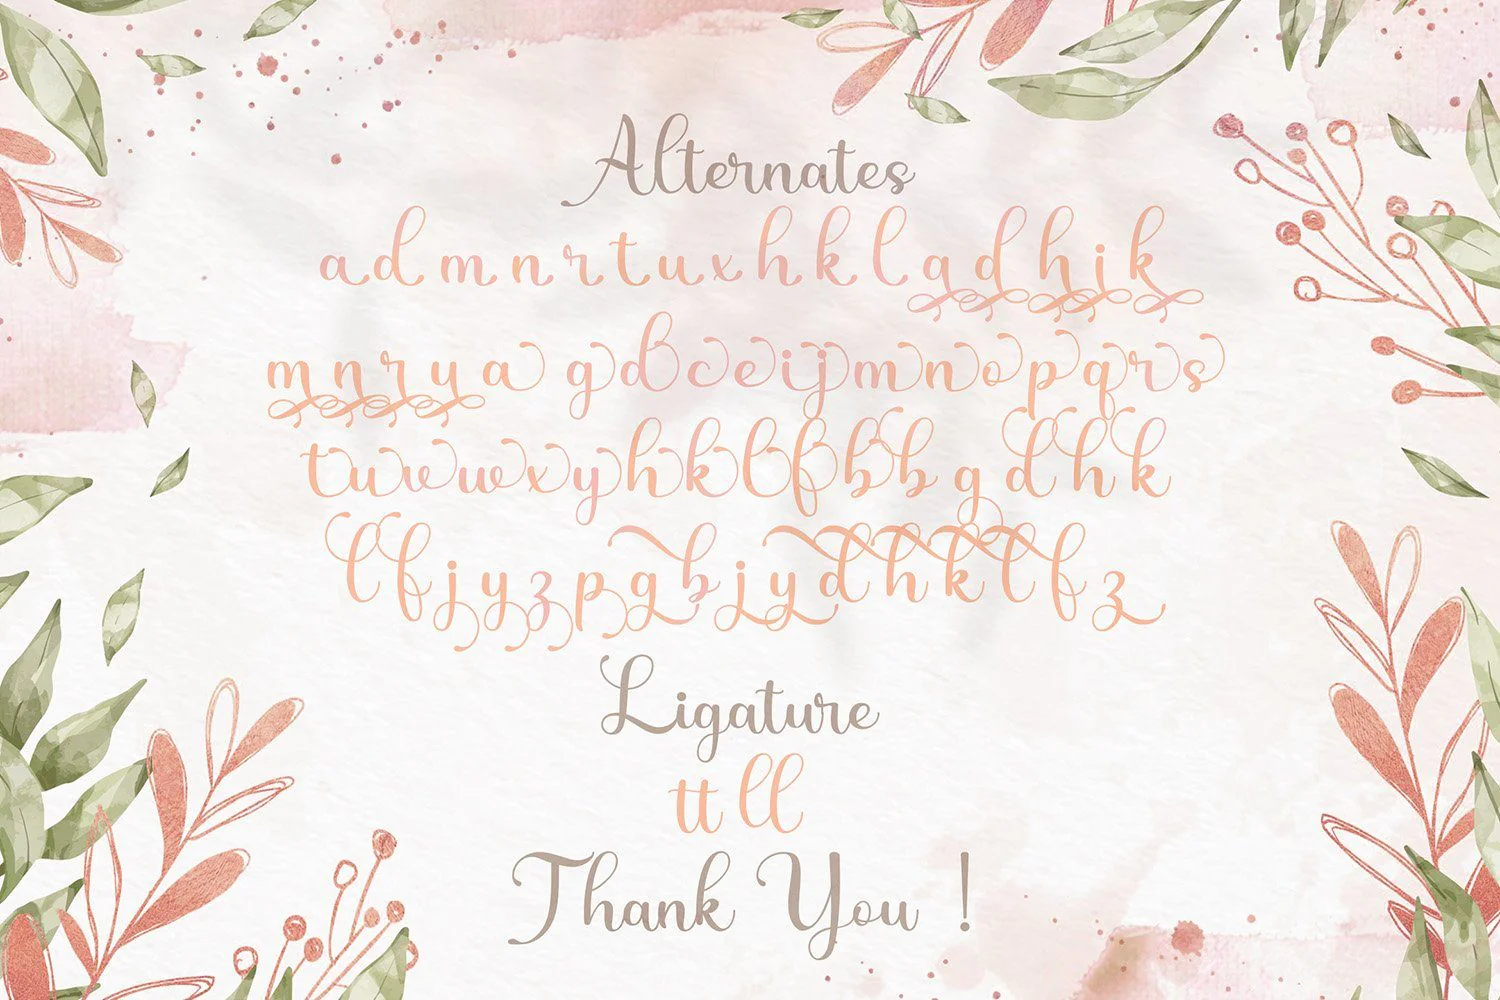 Alternates
a d m n r t u x h k l a d h i k
m n r u a g d c e i j m n o p q r s
t u v w x y h k l f b b g d h k
l f j y z p g b j y d h k l f z
Ligature
tt ll
Thank You !